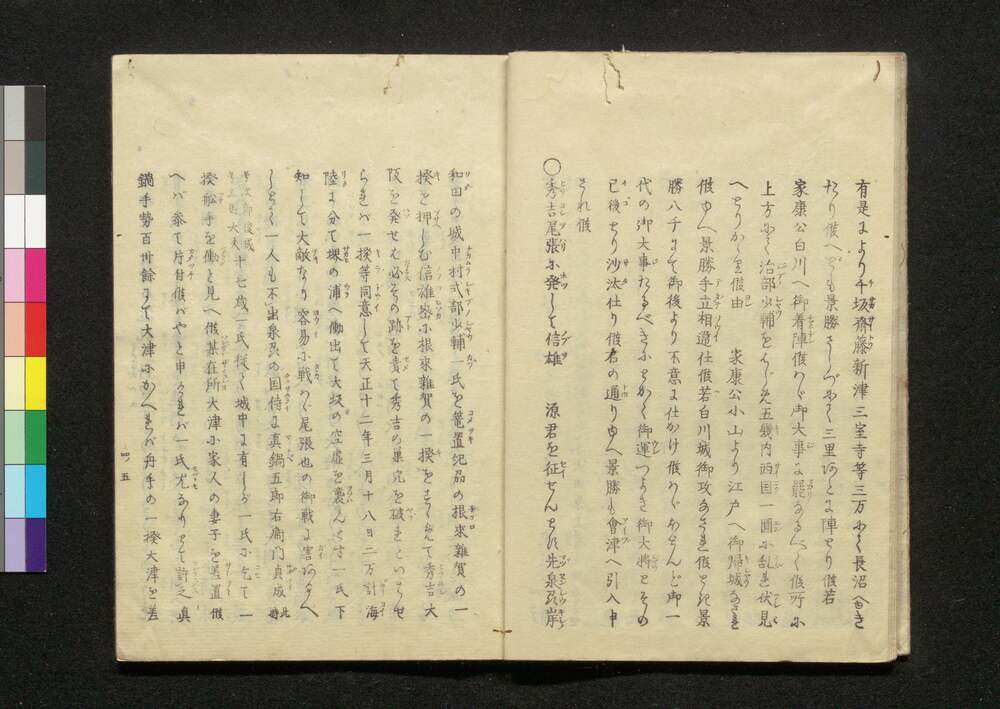 有是により千坂齋藤新津三室寺等三万にて長沼へ出き
たり候へども景勝さしづにて三里ほとに陣とり候若
家康公白川へ御着陣候わゞ御大事に罷なるべく候所に
上方にて治部少輔をはじめ五畿内西国一圓に乱を伏見
へとりかけ候由 家康公小山より江戸へ御帰城なされ
候ゆへ景勝手立相違仕候若白川城御攻なされ候とき景
勝八千にて御後より不意に仕かけ候わゞほとんど御一
代の御大事たるべきにとかく御運つよき御大将とその
已後より沙汰仕り候右の通りゆへ景勝も會津へ引入申
され候
○秀吉尾張に発して信雄 源君を征せんとす先泉刕岸
和田の城中村式部少輔一氏を篭置紀刕の根来雜賀の一
揆を押しむ信雄密に根来雜賀の一揆をすゝめて秀吉大
阪を発せば必その跡を責て秀吉の巣穴を破れといはせ
られバ一揆等同意して天正十二年三月十八日二万計海
陸に分て堺の浦へ働出て大坂の空虚を襲んとす一氏下
知して大敵なり容易に戦わゞ尾張
の御戦に害あるべ
しとて一人も不出泉刕の国侍に真鍋五郎右衛門貞成
十七歳一氏に従て城中に有しが一氏に乞て一
揆舩手を働と見へ候某在所大津に家人の妻子を差置候
へバ参て片付候バやと申されバ一氏尤なりとて許之真
鍋手勢百卅餘にて大津にかへれバ舟手の一揆大津を差
四ノ五